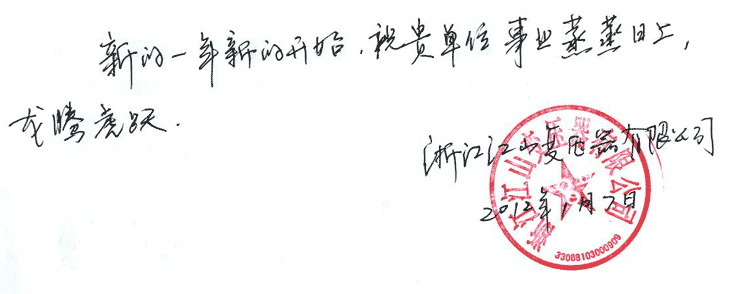 新的一年新的开始，祝贵单位事业蒸蒸日上，
龙腾虎跃．
浙江江山变压器有限公司
2012年1月7日
浙江江山变压器有限公司
33068103000909